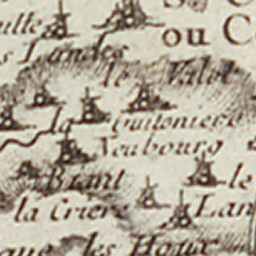 ou C
Landes
le Valet
la Guitoniere
Neubourg
Brant
le
la Criere
Lan
les Houx